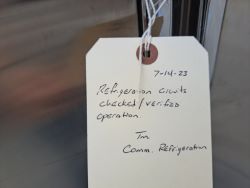 7-14-23
Refrigeration Circuits
checked/verified
operation.
Tm
Comm. Refrigeration